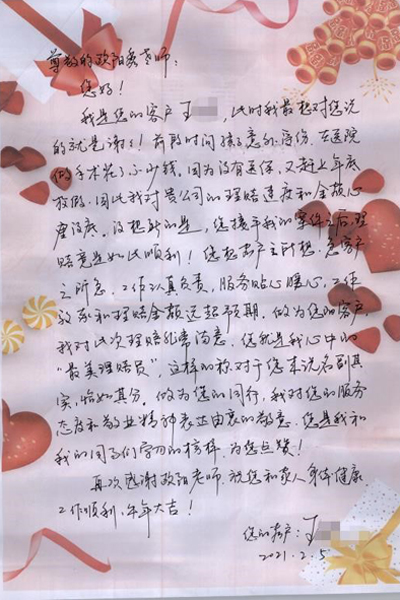 尊敬的欧阳老师：
您好！
我是您的客户王，此时我最想对您说
的就是谢谢！前段时间孩子意外受伤，在医院
做手术花了不少钱。因为没有医保，又赶上年底
放假，因此我对贵公司的理赔速度和金额心
里没底。没想到的是，您接手我的案件之后，理
赔竟是如此顺利！您想客户之所想，急客户
之所急，工作认真负责，服务贴心暖心，工作
效率和理赔金额远超预期。做为您的客户，
我对此次理赔非常满意。您就是我心中的
“最美理赔员”，这样的称对于您来说名副其
实，恰如其分。做为您的同行，我对您的服务
态度和敬业精神表示由衷的敬意。您是我和
我的同事们学习的榜样，为您点赞！
再次感谢欧阳老师，祝您和家人身体健康
工作顺利，牛年大吉！
您的客户：王
2021.2.5